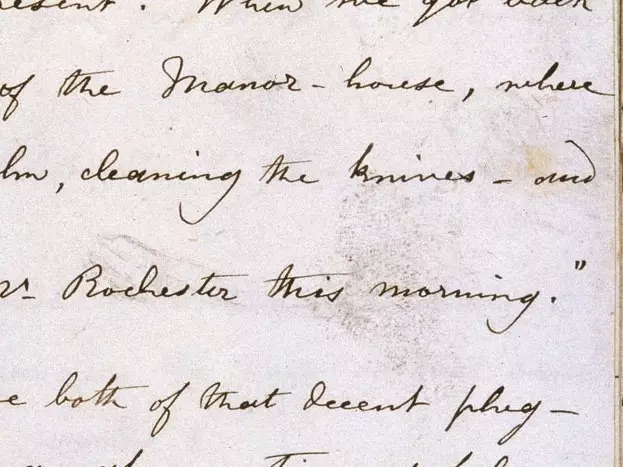 resent. When we got back
of the Manor-house, where
hn, cleaning the knives - and
Mr Rochester this morning."
e both of that decent phleg-